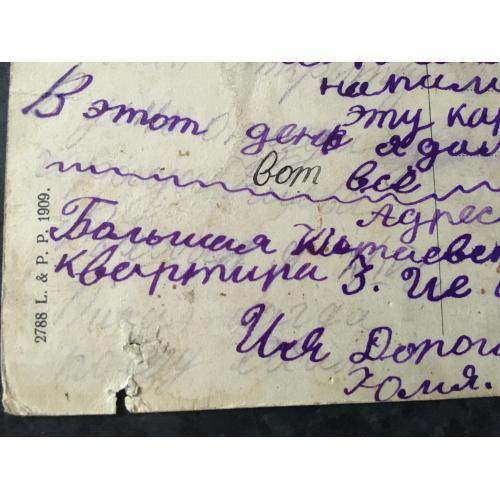 напили
В этот день эту кар
я дал
вот всё
Адрес
Большая Китаевск
квартира 3.
Ия Дорог
Холия.
2788 L. & P. P. 1909.